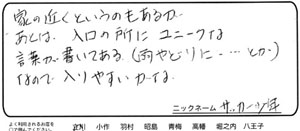 家の近くというのもあるが
あとは、入口の所にユニークな
言葉が書いてある(雨やどりに・・・とか)
なので入りやすいかな
ニックネーム サッカー少年
よく利用されるお店を
○で囲んでください。
小作 羽村 昭島 青梅 高幡 堀之内 八王子